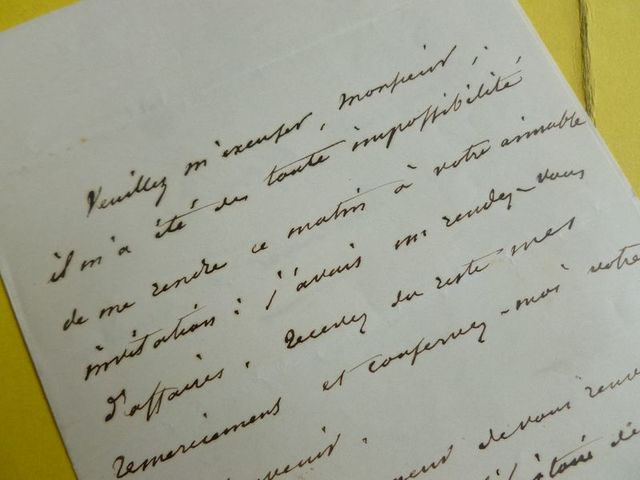 Veuillez m'excuser, monsieur,
il m'a été de toute impossibilité
de me rendre ce matin à votre aimable
invitation : j'avais un rendez-vous
d'affaires. Recevez du reste mes
remerciemens et conservez-moi votre
devous